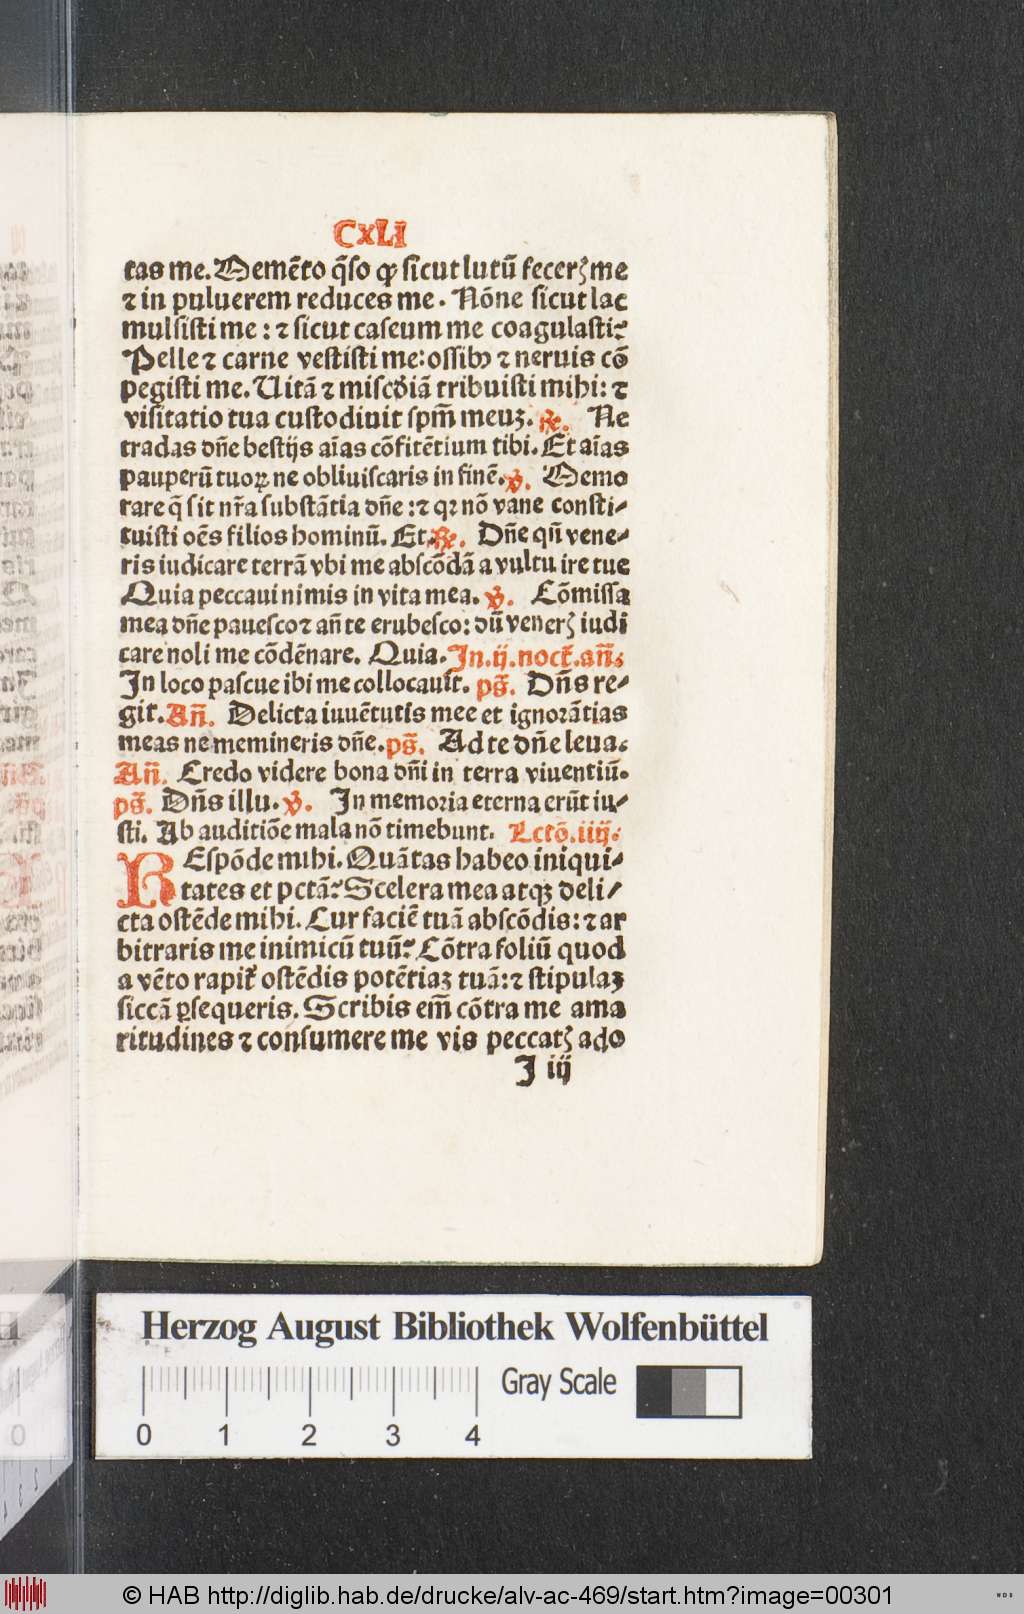 CXLI
tas me. Memẽto q̃so ꝙ sicut lutũ fecerꝭ me
⁊ in puluerem reduces me. Nõne sicut lac
mulsisti me: ⁊ sicut caseum me coagulasti?
Pelle ⁊ carne vestisti me: ossibꝰ ⁊ neruis cõ
pegisti me. Uitã ⁊ miscd̾iã tribuisti mihi: ⁊
visitatio tua custodiuit spm̃ meuꝫ. ℞. Ne
tradas dñe bestijs aĩas cõfitẽtium tibi. Et aĩas
pauperũ tuoꝝ ne obliuiscaris in finẽ. ℣. Memo
rare q̃ sit nr̃a substãtia dñe: ⁊ qꝛ nõ vane consti⸗
tuisti oẽs filios hominũ. Et. ℞. Dñe qũ vene⸗
ris iudicare terrã vbi me abscõdã a vultu ire tue
Quia peccaui nimis in vita mea. ℣. Cõmissa
mea dñe pauesco ⁊ añ te erubesco: dũ venerꝭ iudi
care noli me cõdẽnare. Quia. In .ij. noct̃. añ.
In loco pascue ibi me collocauit. ps̃. Dñs re⸗
git. Añ. Delicta iuuẽtutis mee et ignorãtias
meas ne memineris dñe. ps̃. Ad te dñe leua.
Añ. Credo videre bona dñi in terra viuentiũ.
ps̃. Dñs illu. ℣. In memoria eterna erũt iu⸗
sti. Ab auditiõe mala nõ timebunt. Lctõ. iiij.
REspõde mihi. Quãtas habeo iniqui⸗
tates et pctã? Scelera mea atqꝫ deli⸗
cta ostẽde mihi. Cur faciẽ tuã abscõdis: ⁊ ar
bitraris me inimicũ tuũ? Cõtra foliũ quod
a vẽto rapit̃ ostẽdis potẽtiaꝫ tuã: ⁊ stipulaꝫ
siccã ꝑsequeris. Scribis em̃ cõtra me ama
ritudines ⁊ consumere me vis peccatꝭ ado
J iij
Herzog August Bibliothek Wolfenbüttel
Gray Scale
0 1 2 3 4
© HAB http://diglib.hab.de/drucke/alv-ac-469/start.htm?image=00301